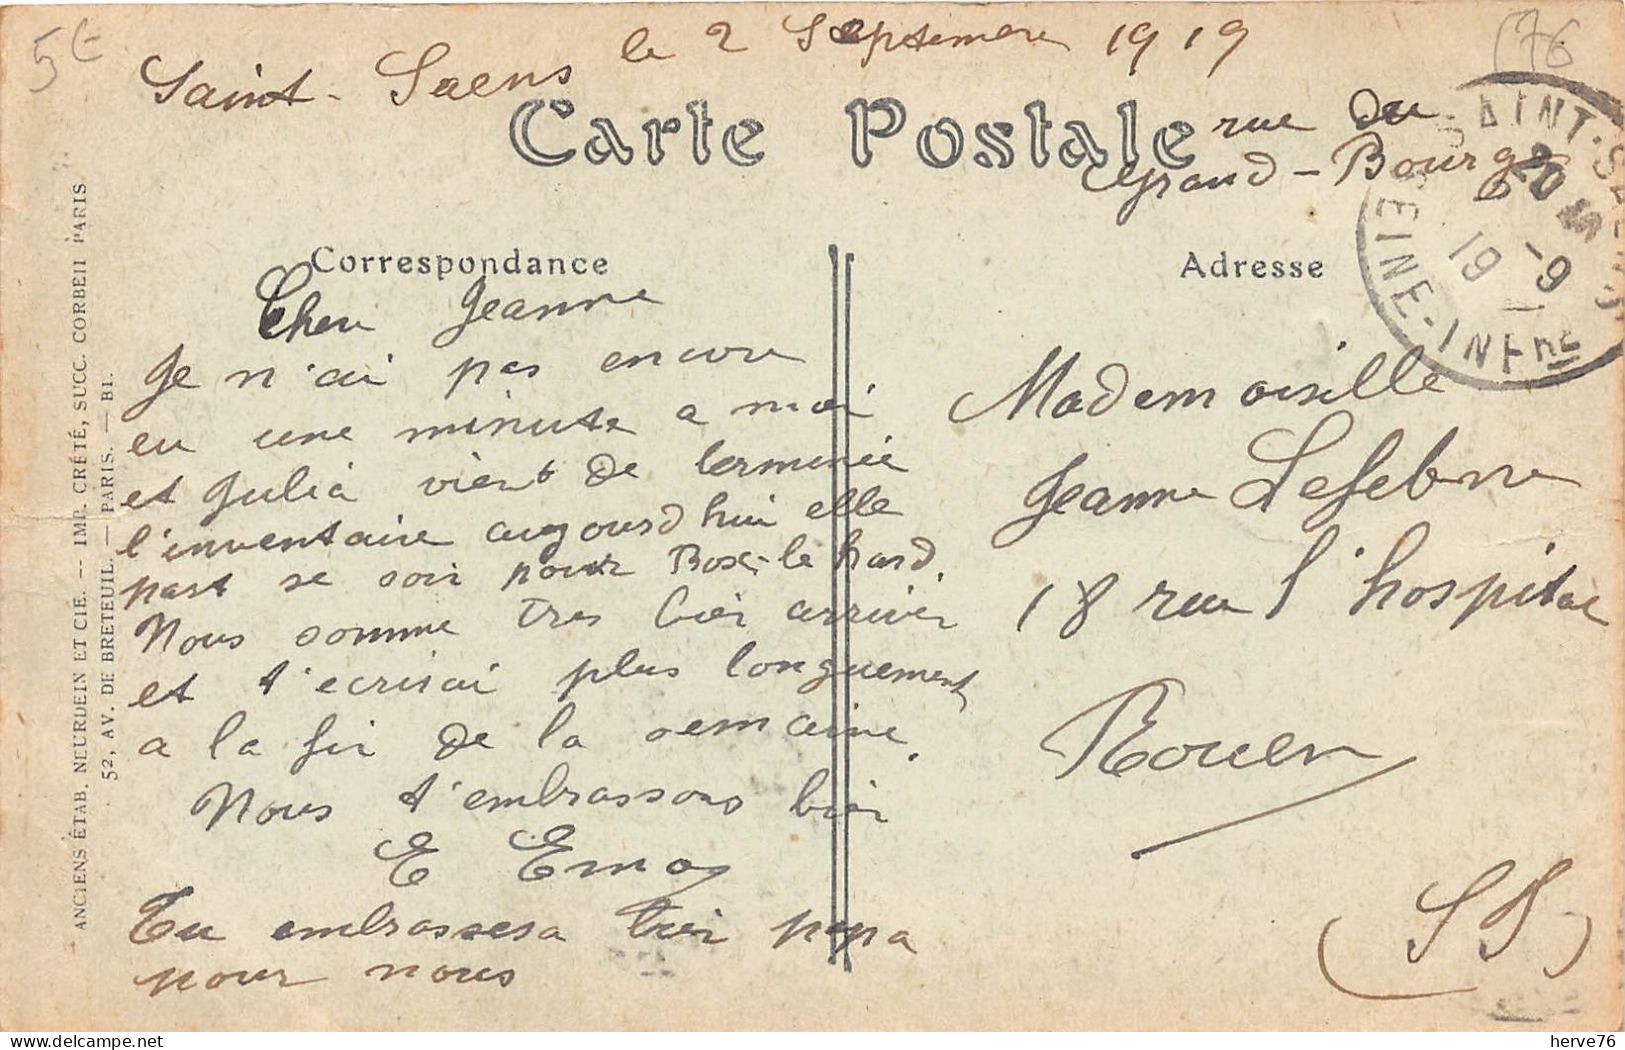 5€
76
Saint-Saens le 2 Septembre 1919
Carte Postale
rue du
Grand-Bourg
SAINT-SAENS
20
19 -9
SEINE-INFre
Correspondance
Adresse
Cher Jeanne
Je n'ai pas encore
eu une minute a moi
et Julia vient de terminée
l'inventaire aujoursd hui elle
part se soir pour Bosc-le hard.
Nous somme tres bien arriver
et t'ecrirai plus longuement
a la fin de la semaine.
Nous t'embrassons bien
E Emoy
Tu embrassera bien papa
pour nous
Mademoiselle
Jeanne Lefebvre
18 rue l'hospital
Rouen
(S I)
ANCIENS ÉTAB. NEURDEIN ET CIE. — IMP. CRÉTÉ, SUCC. CORBEIL PARIS
52, AV. DE BRETEUIL. — PARIS. — BI.
herve76